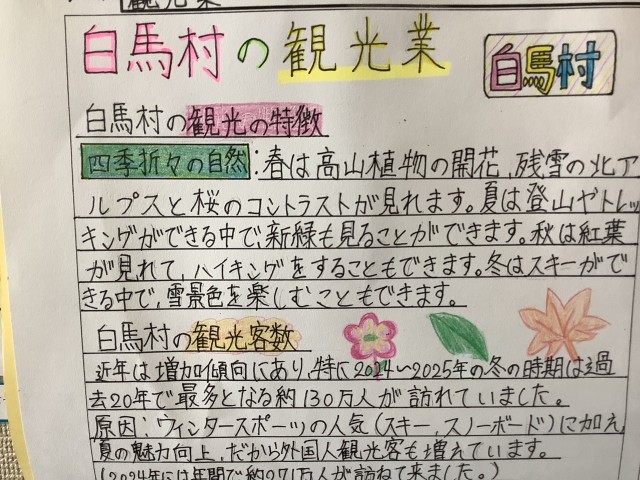 観光業
白馬村の観光業
白馬村
白馬村の観光の特徴
四季折々の自然:春は高山植物の開花、残雪の北ア
ルプスと桜のコントラストが見れます。夏は登山やトレッ
キングができる中で、新緑も見ることができます。秋は紅葉
が見れて、ハイキングをすることもできます。冬はスキーがで
きる中で、雪景色を楽しむこともできます。
白馬村の観光客数
近年は増加傾向にあり、特に2024〜2025年の冬の時期は過
去20年で最多となる約130万人が訪れていました。
原因:ウィンタースポーツの人気(スキー、スノーボード)に加え、
夏の魅力向上、だから外国人観光客も増えています。
(2024年には年間で約271万人が訪ねて来ました。)